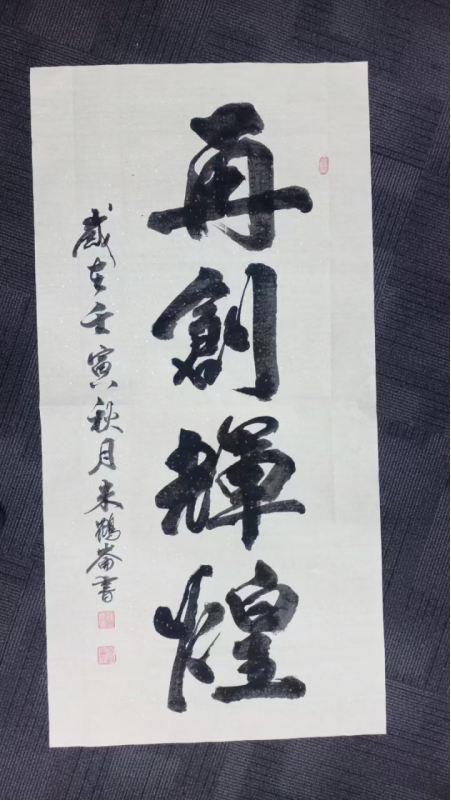 再創輝煌
歲在壬寅秋月朱鶴崙書